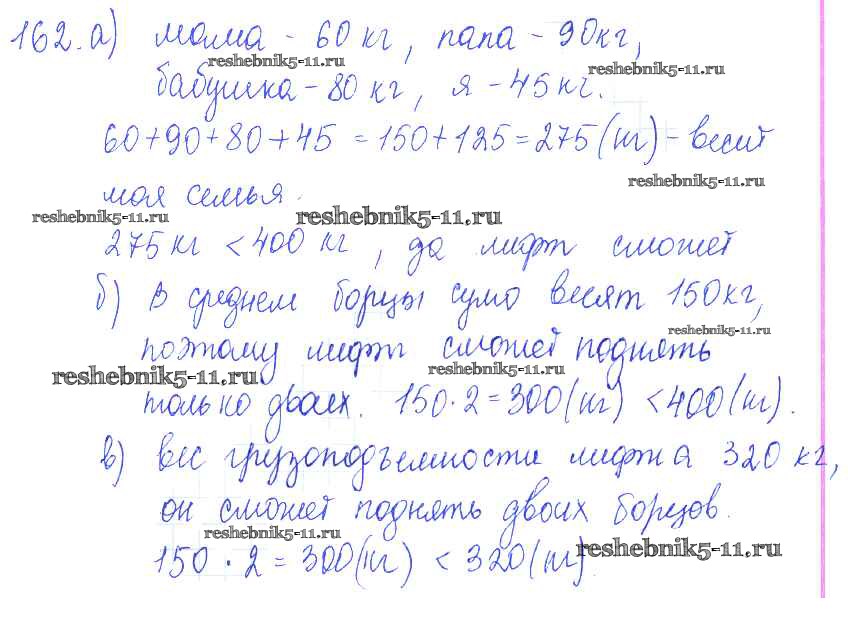 162. а) мама - 60 кг, папа - 90кг,
reshebnik5-11.ru
reshebnik5-11.ru
бабушка - 80 кг, я - 45 кг.
60+90+80+45 = 150+125 = 275 (кг) - весит
reshebnik5-11.ru
моя семья.
reshebnik5-11.ru
reshebnik5-11.ru
275 кг < 400 кг, да лифт сможет
б) в среднем борцы сумо весят 150кг,
reshebnik5-11.ru
поэтому лифт сможет поднять
reshebnik5-11.ru
reshebnik5-11.ru
только двоих. 150·2 = 300 (кг) < 400 (кг).
в) вес грузоподъемности лифта 320 кг,
он сможет поднять двоих борцов.
reshebnik5-11.ru
150 · 2 = 300 (кг) < 320 (кг)
reshebnik5-11.ru